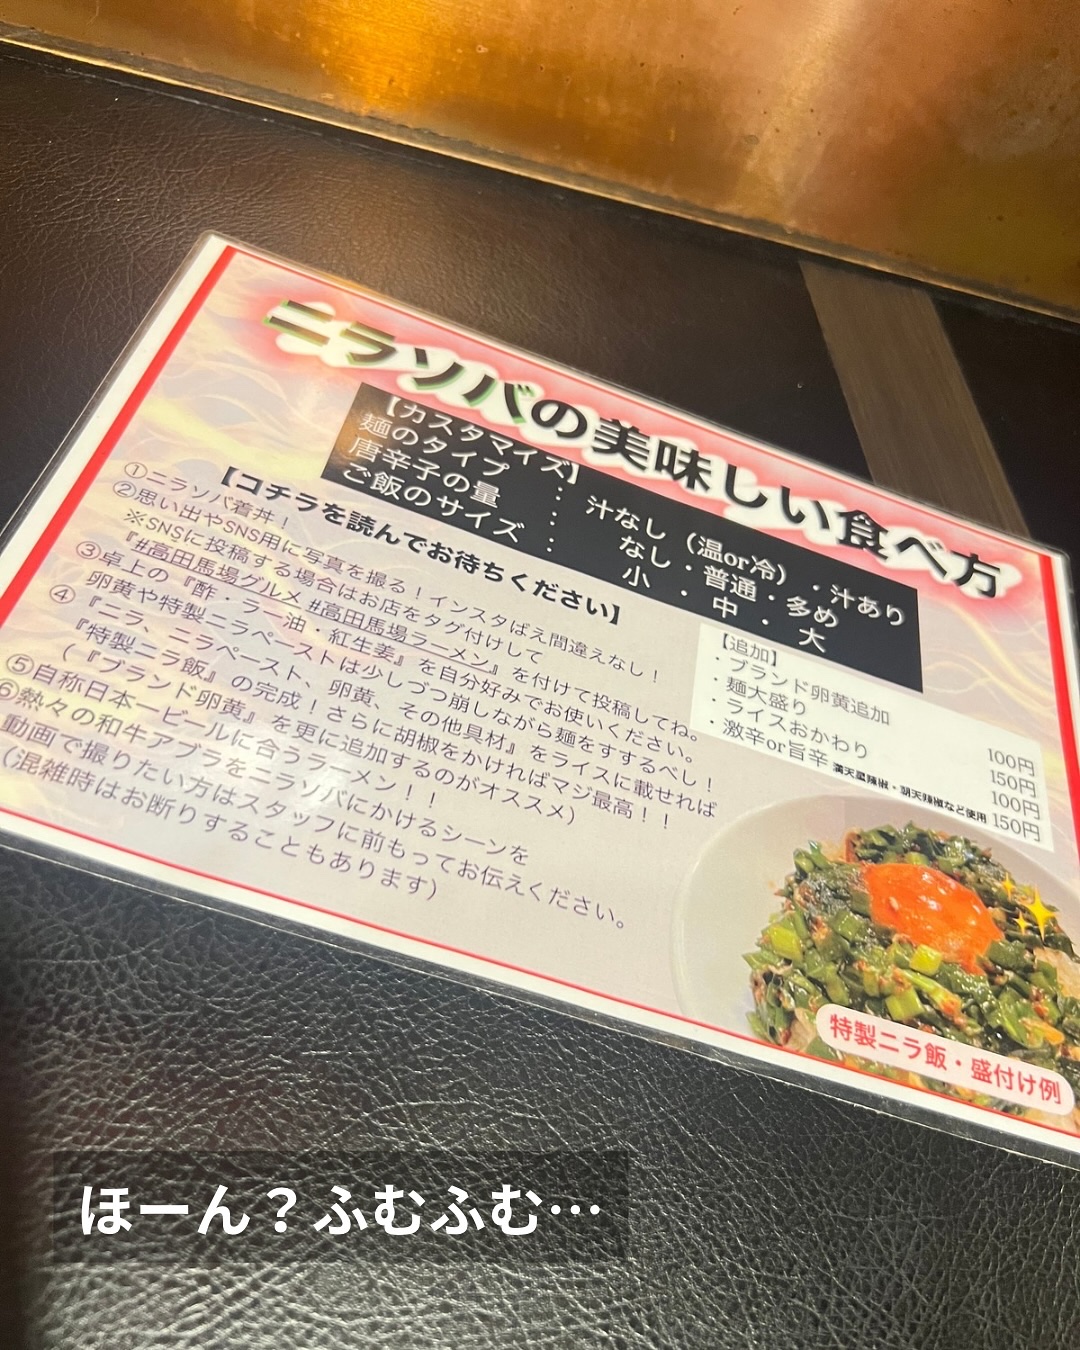 ニラソバの美味しい食べ方
【カスタマイズ】
麺のタイプ : 汁なし(温or冷)・汁あり
唐辛子の量 : なし・普通・多め
ご飯のサイズ : 小・中・大
【コチラを読んでお待ちください】
①ニラソバ着丼！
②思い出やSNS用に写真を撮る！インスタばえ間違えなし！
※SNSに投稿する場合はお店をタグ付けして
『#高田馬場グルメ #高田馬場ラーメン』を付けて投稿してね。
③卓上の『酢・ラー油・紅生姜』を自分好みでお使いください。
卵黄や特製ニラペーストは少しづつ崩しながら麺をすするべし！
④『ニラ、ニラペースト、卵黄、その他具材』をライスに載せれば
『特製ニラ飯』の完成！さらに胡椒をかければマジ最高！！
(『ブランド卵黄』を更に追加するのがオススメ)
⑤自称日本一ビールに合うラーメン！！
⑥熱々の和牛アブラをニラソバにかけるシーンを
動画で撮りたい方はスタッフに前もってお伝えください。
(混雑時はお断りすることもあります)
【追加】
・ブランド卵黄追加 100円
・麺大盛り 150円
・ライスおかわり 100円
・激辛or旨辛 満天星辣椒・朝天辣椒など使用 150円
特製ニラ飯・盛付け例
ほーん？ふむふむ…